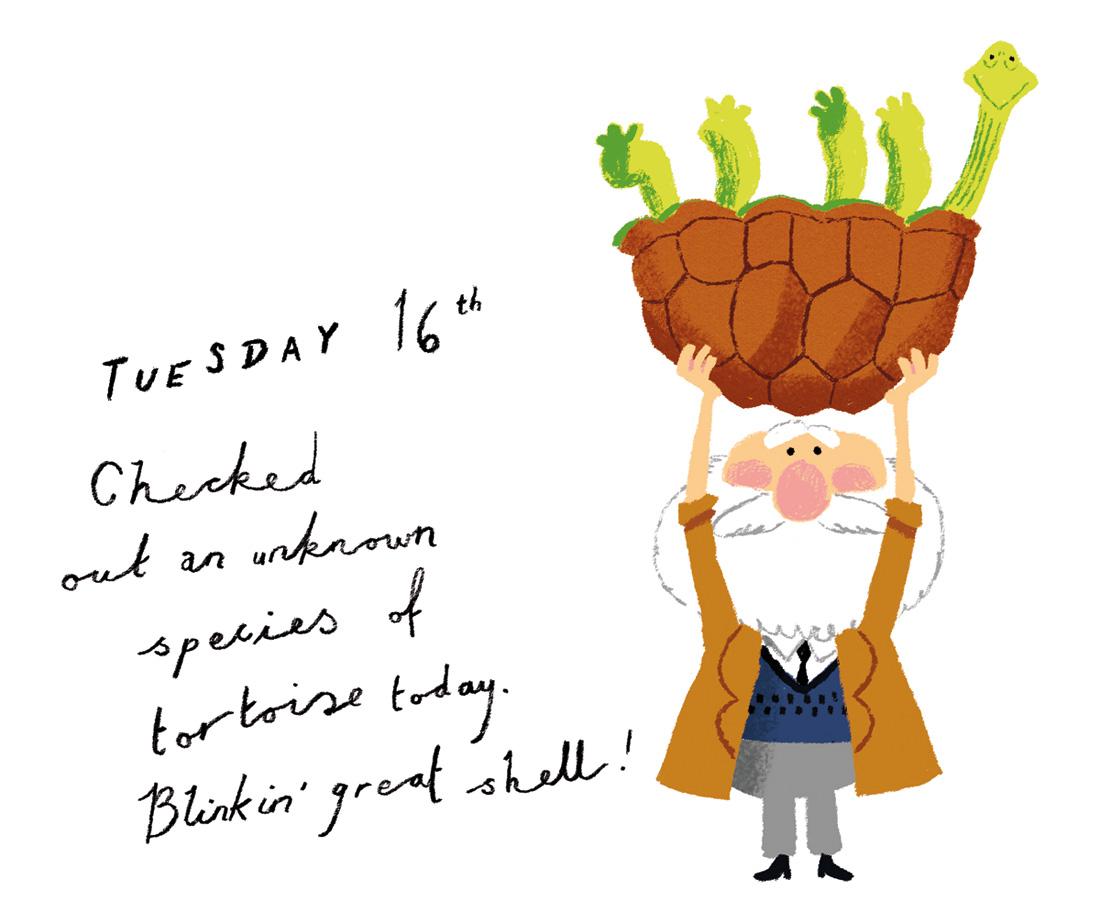 TUESDAY 16th
Checked
out an unknown
species of
tortoise today.
Blinkin' great shell!